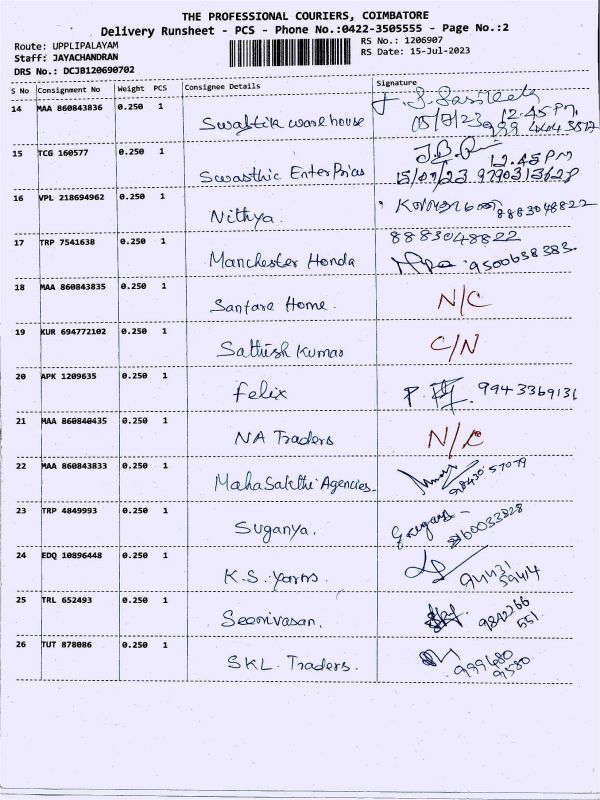 THE PROFESSIONAL COURIERS, COIMBATORE
Delivery Runsheet - PCS - Phone No.:0422-3505555 - Page No.:2
Route: UPPLIPALAYAM RS No.: 1206907
Staff: JAYACHANDRAN RS Date: 15-Jul-2023
DRS No.: DCJB120690702
S No Consignment No Weight PCS Consignee Details Signature
14 MAA 860843836 0.250 1 Swastik warehouse 12.45 Pm,
15 TCG 160577 0.250 1 Swasthic EnterPrices 12.45 PM
15/07/23 9790313628
16 VPL 218694962 0.250 1 Nithya. 8883048822
17 TRP 7541638 0.250 1 Manchester Honda 8883048822
9500638383
18 MAA 860843835 0.250 1 Santara Home. N/C
19 KUR 694772102 0.250 1 Sathish Kumar C/N
20 APK 1209635 0.250 1 Felix 9943369131
21 MAA 860840435 0.250 1 NA Traders N/C
22 MAA 860843833 0.250 1 MahaSakthi Agencies 9843057079
23 TRP 4849993 0.250 1 Suganya.
24 EDQ 10896448 0.250 1 K.S. Yarns. 94431
59414
25 TRL 652493 0.250 1 Seenivasan. 9842266
551
26 TUT 878086 0.250 1 SKL. Traders. 999480
9580